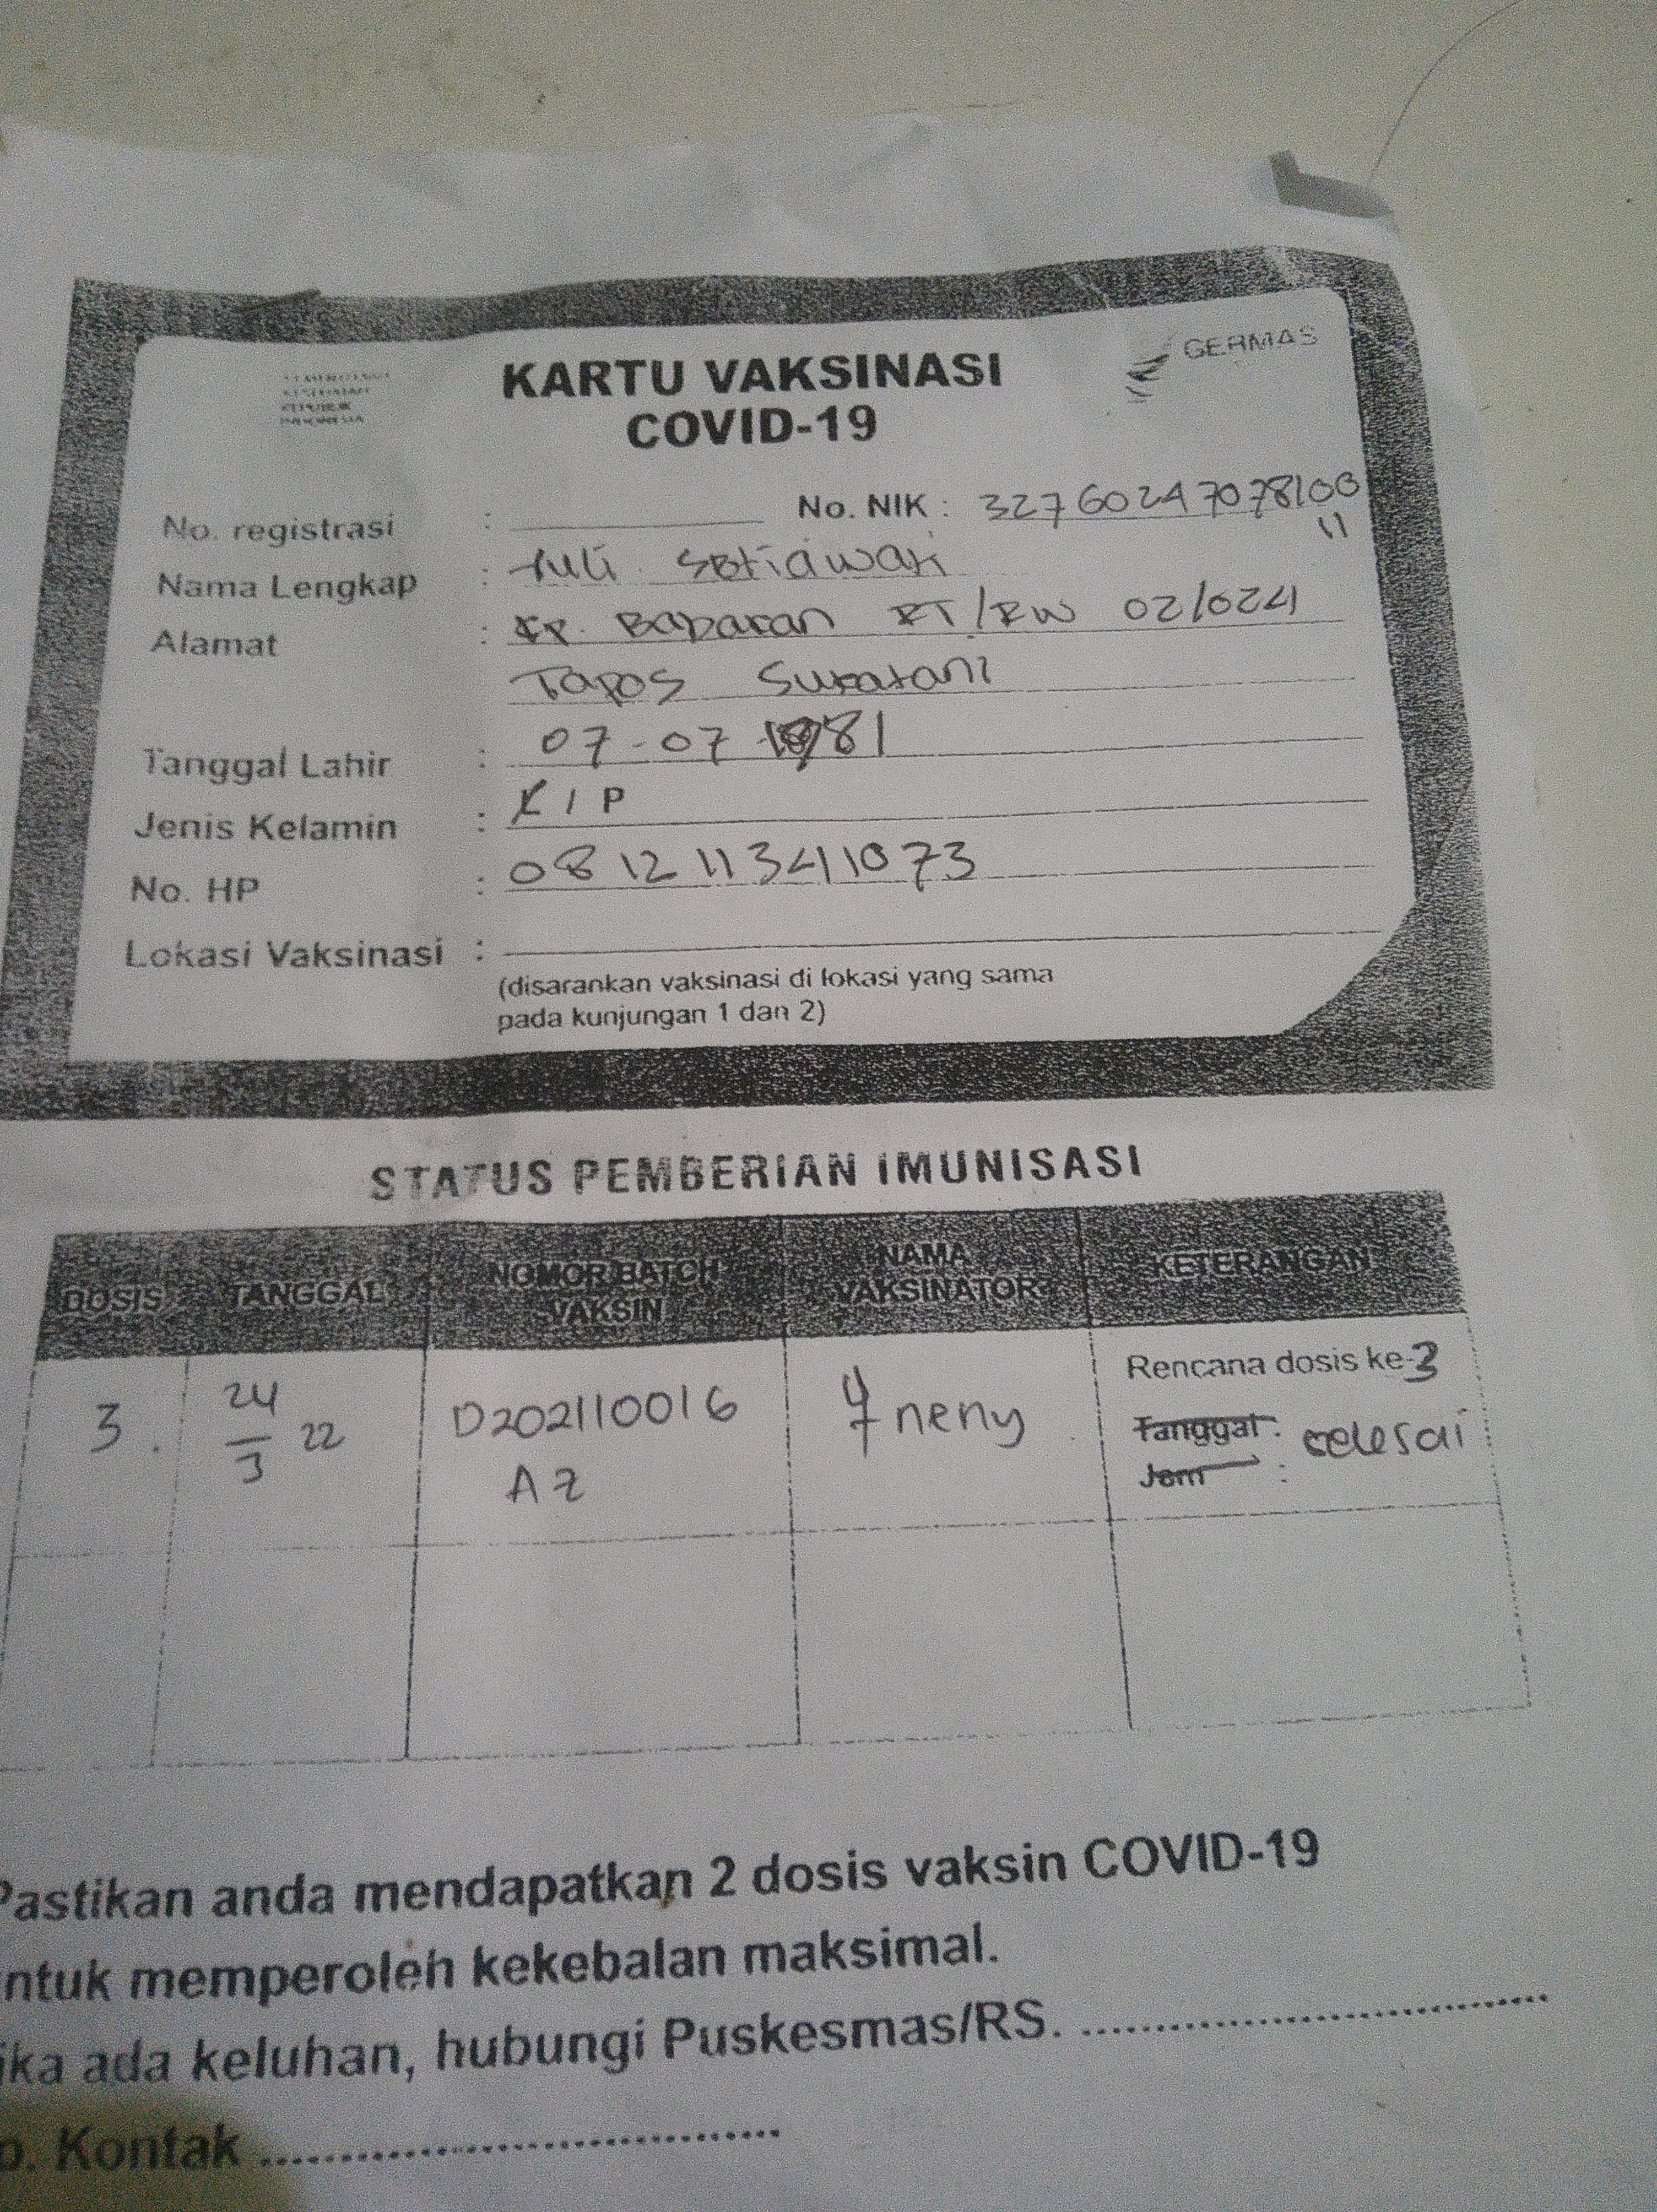 KEMENTERIAN
KESEHATAN
REPUBLIK
INDONESIA
GERMAS
KARTU VAKSINASI
COVID-19
No. registrasi : No. NIK : 32760247078100
11
Nama Lengkap : Yuli Setiawati
Alamat : Kp. Babakan RT/RW 02/024
Tapos Sukatani
Tanggal Lahir : 07-07-1981
Jenis Kelamin : L / P
No. HP : 081211341073
Lokasi Vaksinasi :
(disarankan vaksinasi di lokasi yang sama
pada kunjungan 1 dan 2)
STATUS PEMBERIAN IMUNISASI
DOSIS TANGGAL NOMOR BATCH VAKSIN NAMA VAKSINATOR KETERANGAN
3. 24/3 22 D202110016 AZ neny Rencana dosis ke-3
Tanggal : selesai
Jam :
Pastikan anda mendapatkan 2 dosis vaksin COVID-19
ntuk memperoleh kekebalan maksimal.
ika ada keluhan, hubungi Puskesmas/RS. ..............................
o. Kontak ..............................